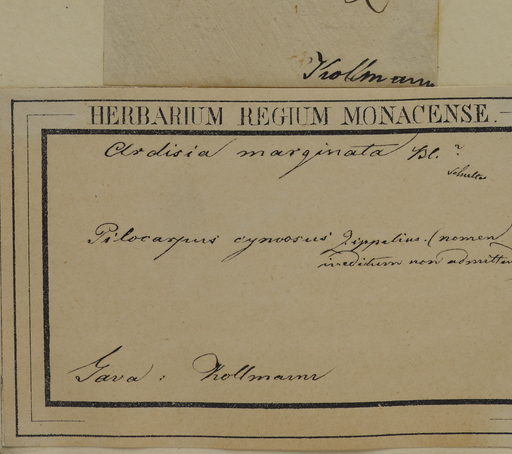 Kollmann
HERBARIUM REGIUM MONACENSE.
Ardisia marginata Bl. ?
Schultes
Pilocarpus cymosus Zippelius. (nomen
ineditum non admitten
Java: Kollmann